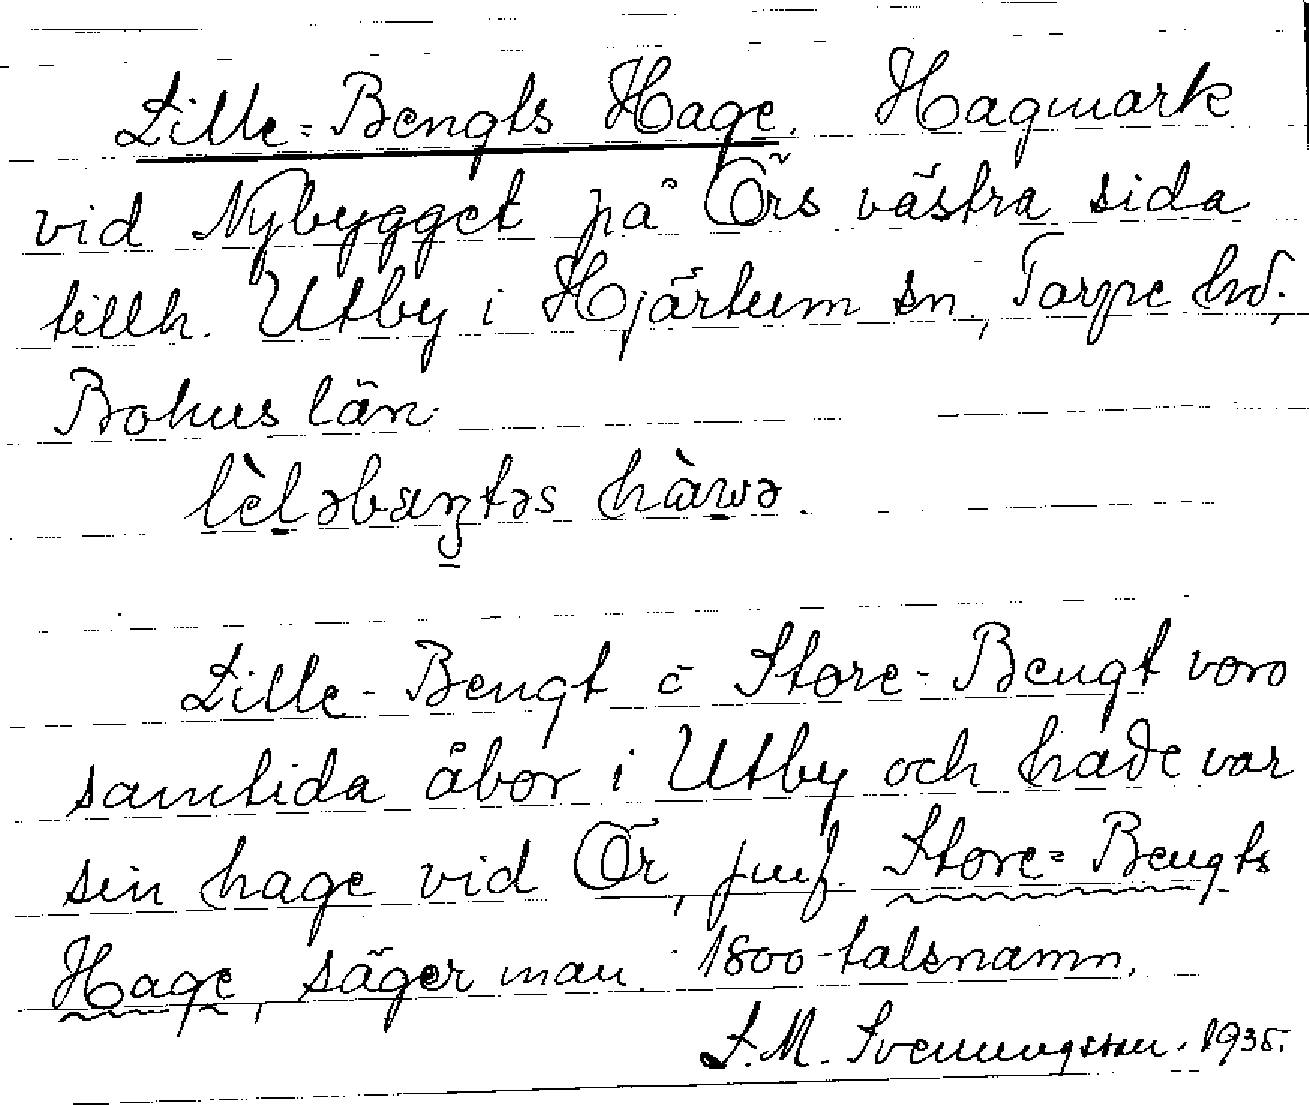 Lille-Bengts Hage. Hagmark
vid Nybygget på Örs västra sida
tillh. Utby i Hjärtum sn, Torpe hd,
Bohus län
lèləbæŋtəs hàwə.
Lille-Bengt o Store-Bengt voro
samtida åbor i Utby och hade var
sin hage vid Ör, jmf. Store-Bengts
Hage, säger man. 1800-talsnamn.
S.M. Svenungsson. 1935.